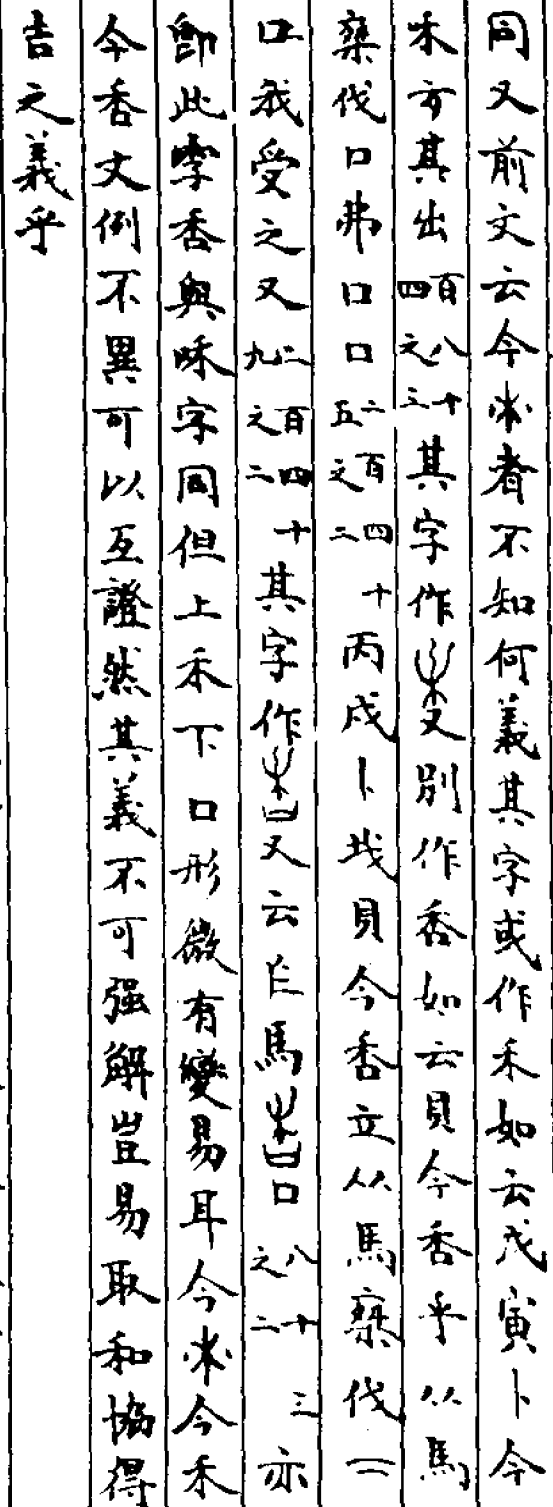 同又前文云今者不知何義其字或作禾如云戊寅卜今
禾方其出百八十四之三其字作別作香如云貝今香乎从馬
伐口弗口口二百四十五之二丙戌卜貝今香立从馬伐二
口我受之又二百四十九之二其字作又云馬口八十三之二亦
卽此字香與咊字同但上禾下口形微有變易耳今今禾
今香文例不異可以互證然其義不可强解豈易取和協得
吉之義乎